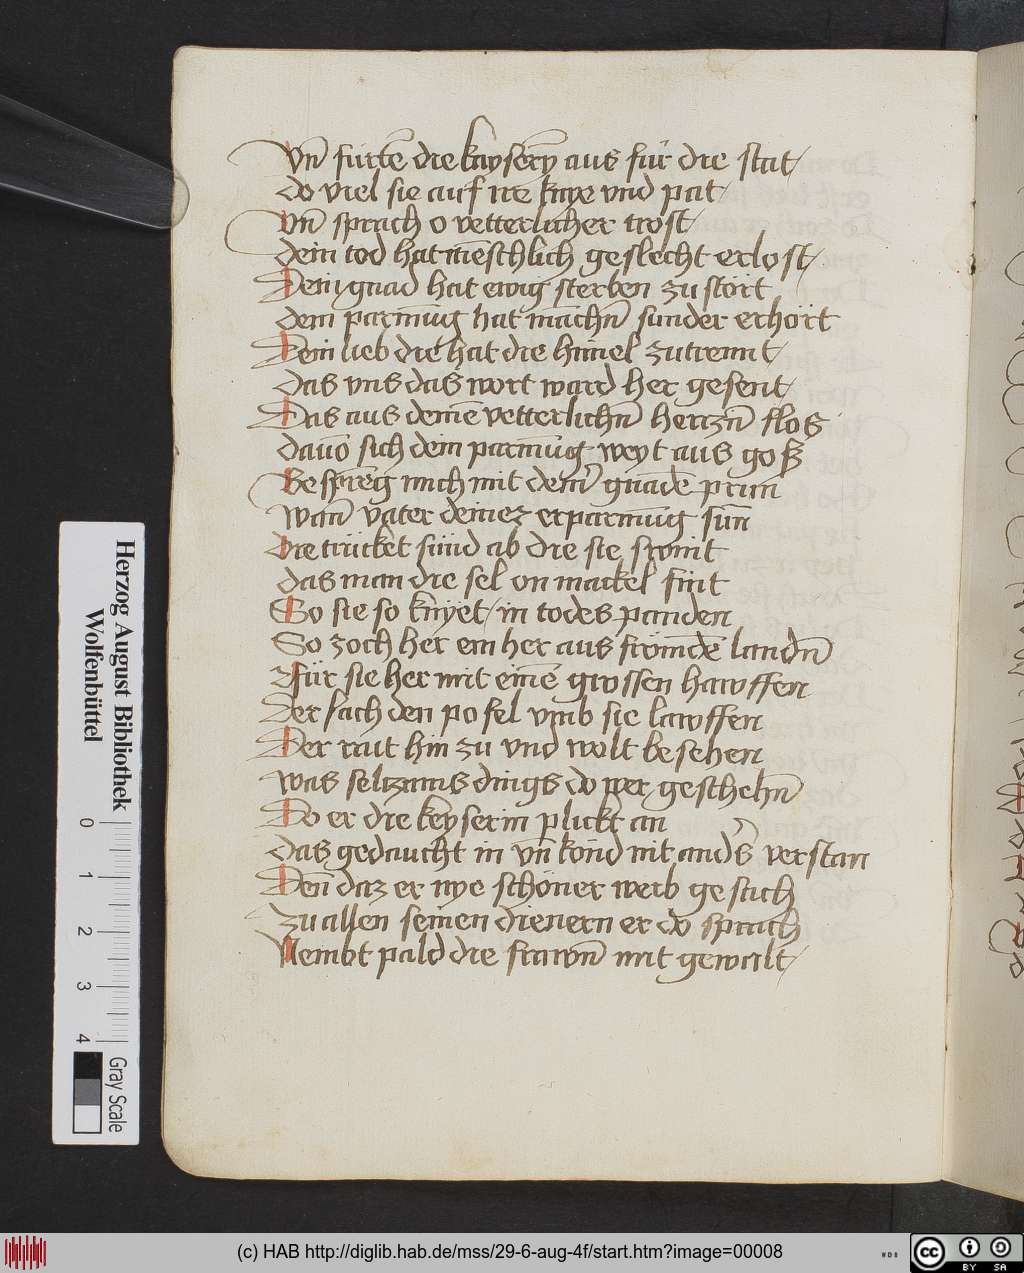 Vn̄ fürtē die kayserȳ aus für die stat/
do viel sie auf ire knye vnd pat/
Vn̄ sprach o vetterlicher trost/
dein tod hat mēschlich geslecht erlost/
Dein gnad hat ewig sterben zu stört
dein parmūg hat māchn̄ sunder erhört
Dein lieb die hat die himel zutrennt/
das vns das wort ward her gesent/
Das aus deinē vetterlichn̄ hertzn̄ flos
dauō sich dein parmūg weyt aus goß
Besprēg mich mit dein̄ gnadē prun̄
Wan̄ vater deinez erparmūg sun̄
die trücket sünd ab die sie swint
das man die sel on mackel fint
So sie so knyet/ in todes panden
So zoch her ein her aus frömdē landn̄
Für sie her mit einē grossen hawffen
Der sach den pofel vmb sie lawffen
Der rait hin zu vnd wolt besehen
was seltzams dings do wer geschehn̄
Do er die keyserin plickt an
das gedaucht in vn̄ kond nit anders verstan
Den̄ daz er nye schöner weib gesach
zu allen seinen dienern er do sprach
Nembt pald die frawn̄ mit gewalt/
Herzog August Bibliothek
Wolfenbüttel
0 1 2 3 4
Gray Scale
(c) HAB http://diglib.hab.de/mss/29-6-aug-4f/start.htm?image=00008
WDB
cc BY SA